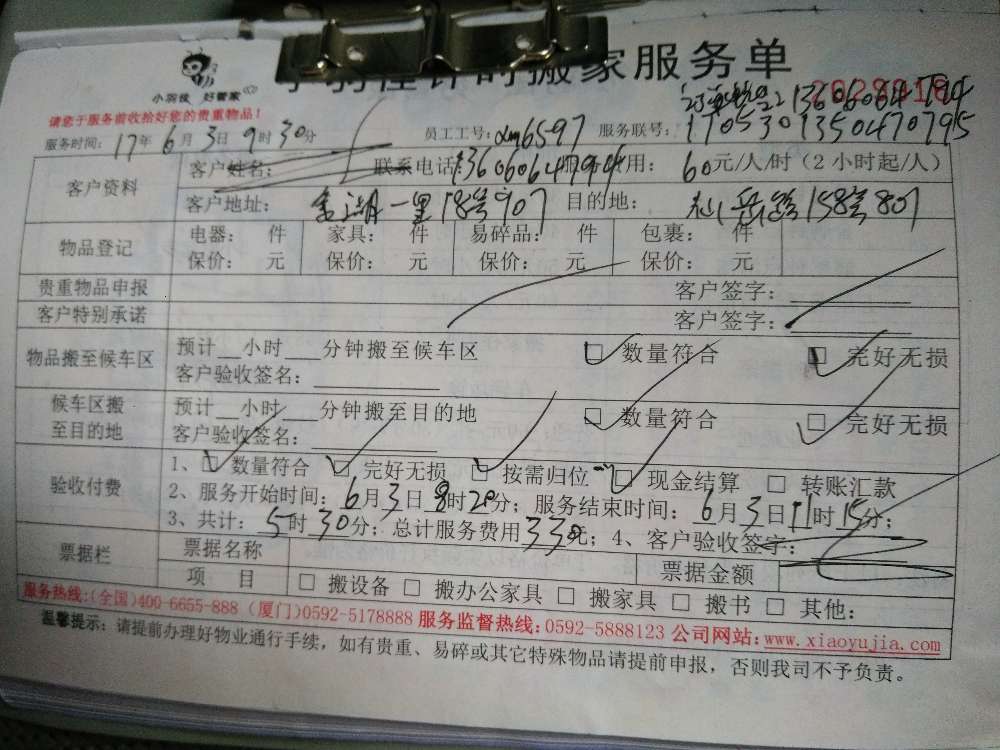 计时搬家服务单
小羽佳 好管家
请您于服务前收拾好您的贵重物品！
13606064794
服务时间：17年6月3日9时30分 员工工号：6597 服务联号：1705301350470795
客户资料 客户姓名： 联系电话：13606064794 费用：60元/人/时（2小时起/人）
客户地址：金湖一里18号907 目的地：岳路158号807
物品登记 电器： 件 家具： 件 易碎品： 件 包裹： 件
保价： 元 保价： 元 保价： 元 保价： 元
贵重物品申报 客户签字：
客户特别承诺 客户签字：
物品搬至候车区 预计__小时___分钟搬至候车区 □数量符合 □完好无损
客户验收签名：
候车区搬至目的地 预计__小时___分钟搬至目的地 □数量符合 □完好无损
客户验收签名：
验收付费 1、□数量符合 □完好无损 □按需归位 □现金结算 □转账汇款
2、服务开始时间：6月3日8时20分；服务结束时间：6月3日11时15分；
3、共计：5时30分；总计服务费用330元；4、客户验收签字：
票据栏 票据名称 票据金额
项 目 □搬设备 □搬办公家具 □搬家具 □搬书 □其他：
服务热线：(全国)400-6655-888 (厦门)0592-5178888 服务监督热线：0592-5888123 公司网站：www.xiaoyujia.com
温馨提示：请提前办理好物业通行手续，如有贵重、易碎或其它特殊物品请提前申报，否则我司不予负责。